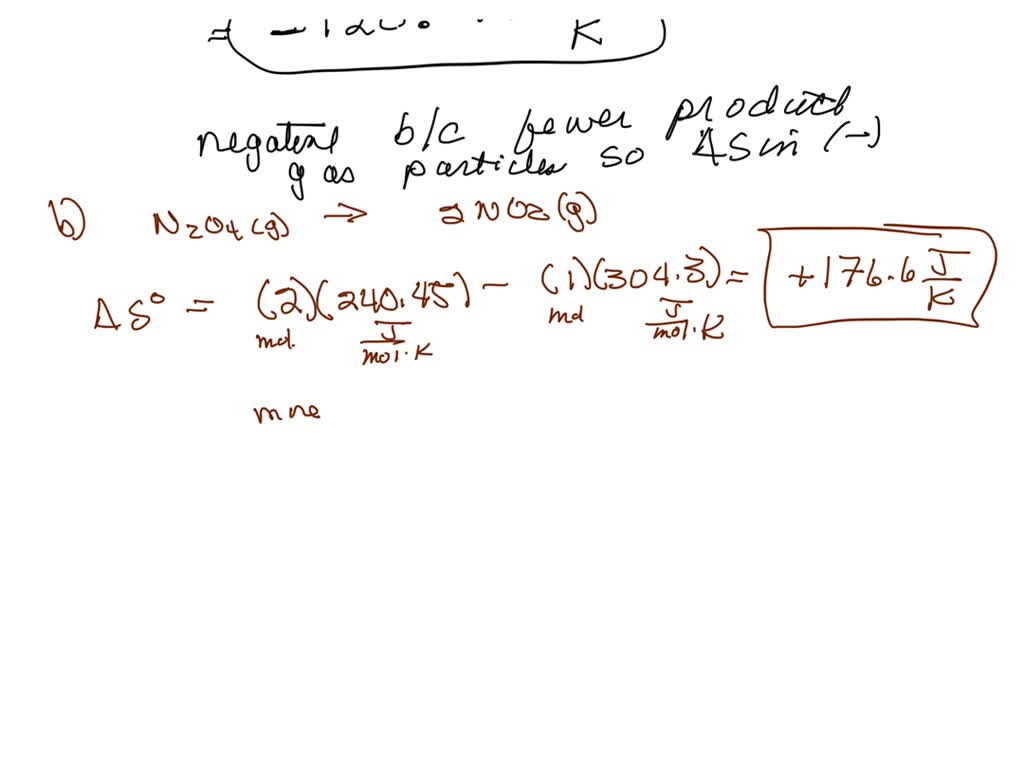 = - 120. K
negative b/c fewer product
gas particles so ΔS in (-)
b) N2O4(g) → 2NO2(g)
ΔS° = (2)(240.45) - (1)(304.3) = +176.6 J/K
mol. J/mol·K mol J/mol·K
more